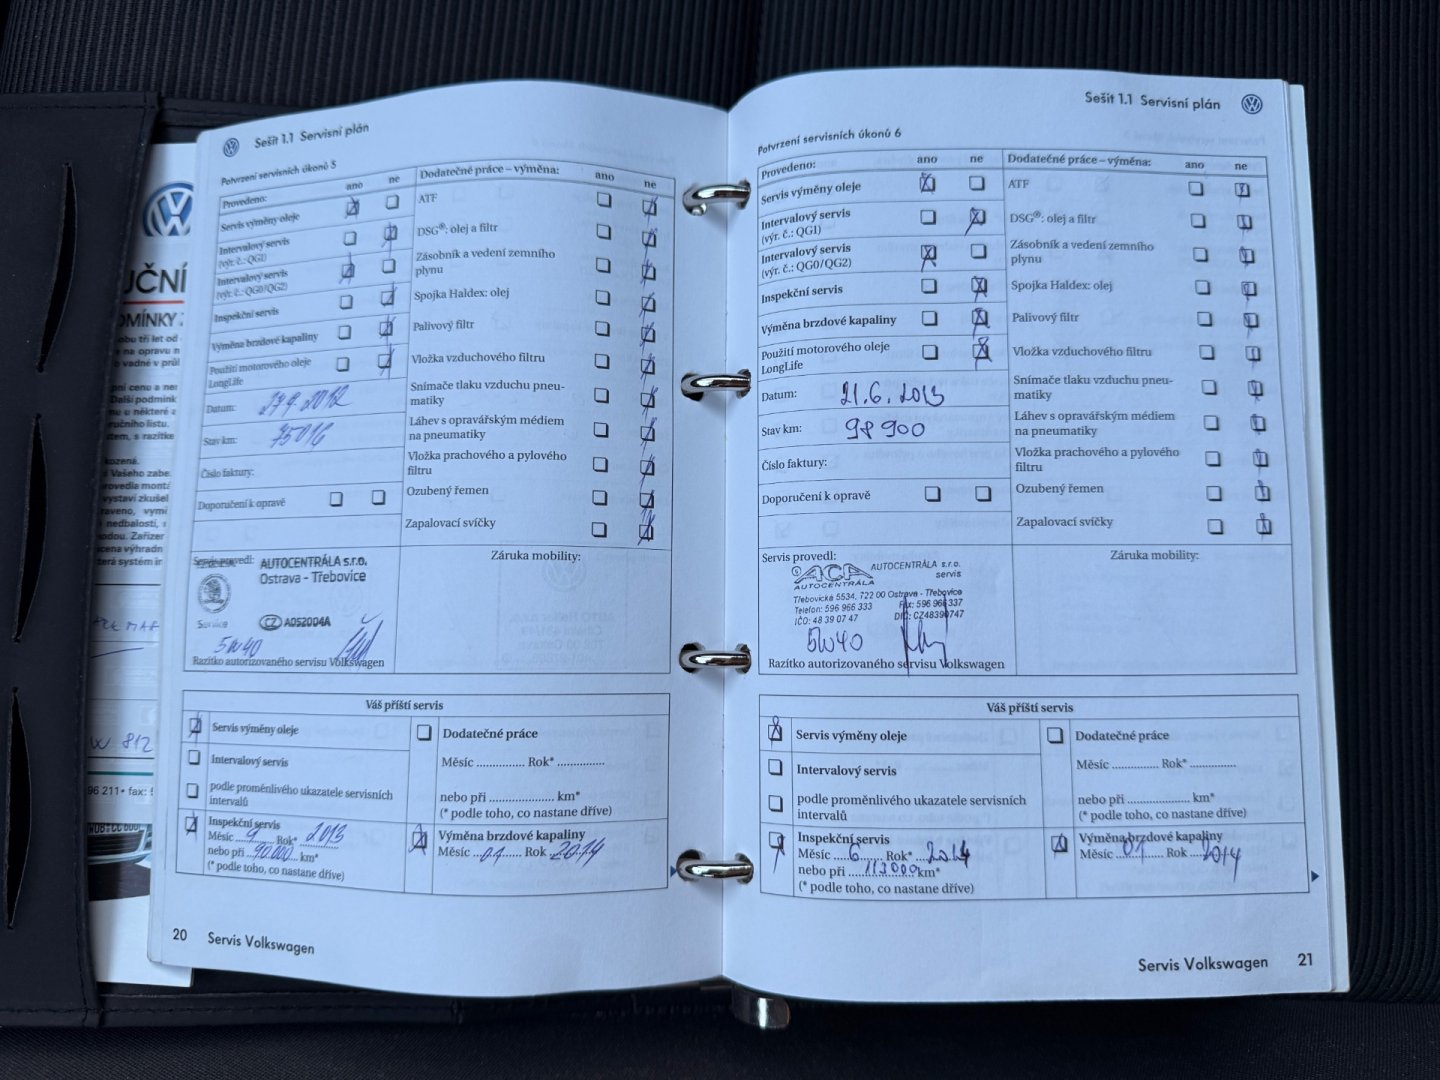 Sešit 1.1 Servisní plán
Potvrzení servisních úkonů 5
Provedeno: ano ne
Servis výměny oleje
Intervalový servis
(výr. č.: QG1)
Intervalový servis
(výr. č.: QG0/QG2)
Inspekční servis
Výměna brzdové kapaliny
Použití motorového oleje
LongLife
Datum: 27.9.2012
Stav km: 75016
Číslo faktury:
Doporučení k opravě
Dodatečné práce – výměna: ano ne
ATF
DSG®: olej a filtr
Zásobník a vedení zemního
plynu
Spojka Haldex: olej
Palivový filtr
Vložka vzduchového filtru
Snímače tlaku vzduchu pneu-
matiky
Láhev s opravářským médiem
na pneumatiky
Vložka prachového a pylového
filtru
Ozubený řemen
Zapalovací svíčky
Servis provedl:
AUTOCENTRÁLA s.r.o.
Ostrava - Třebovice
Service
CZ A052004A
5W40
Razítko autorizovaného servisu Volkswagen
Záruka mobility:
Váš příští servis
Servis výměny oleje
Intervalový servis
podle proměnlivého ukazatele servisních
intervalů
Inspekční servis
Měsíc 9 Rok* 2013
nebo při 90.000 km*
(* podle toho, co nastane dříve)
Dodatečné práce
Měsíc Rok*
nebo při km*
(* podle toho, co nastane dříve)
Výměna brzdové kapaliny
Měsíc 01 Rok 2014
20 Servis Volkswagen
Sešit 1.1 Servisní plán
Potvrzení servisních úkonů 6
Provedeno: ano ne
Servis výměny oleje
Intervalový servis
(výr. č.: QG1)
Intervalový servis
(výr. č.: QG0/QG2)
Inspekční servis
Výměna brzdové kapaliny
Použití motorového oleje
LongLife
Datum: 21.6.2013
Stav km: 98900
Číslo faktury:
Doporučení k opravě
Dodatečné práce – výměna: ano ne
ATF
DSG®: olej a filtr
Zásobník a vedení zemního
plynu
Spojka Haldex: olej
Palivový filtr
Vložka vzduchového filtru
Snímače tlaku vzduchu pneu-
matiky
Láhev s opravářským médiem
na pneumatiky
Vložka prachového a pylového
filtru
Ozubený řemen
Zapalovací svíčky
Servis provedl:
ACA AUTOCENTRÁLA s.r.o.
AUTOCENTRÁLA servis
Třebovická 5534, 722 00 Ostrava - Třebovice
Telefon: 596 966 333 Fax: 596 966 337
IČO: 48 39 07 47 DIČ: CZ48390747
5W40
Razítko autorizovaného servisu Volkswagen
Záruka mobility:
Váš příští servis
Servis výměny oleje
Intervalový servis
podle proměnlivého ukazatele servisních
intervalů
Inspekční servis
Měsíc 6 Rok* 2014
nebo při 113000 km*
(* podle toho, co nastane dříve)
Dodatečné práce
Měsíc Rok*
nebo při km*
(* podle toho, co nastane dříve)
Výměna brzdové kapaliny
Měsíc 01 Rok 2014
Servis Volkswagen 21